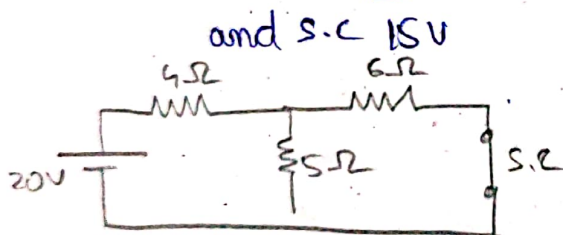 and S.C 15V
4Ω 6Ω
20V 5Ω S.C